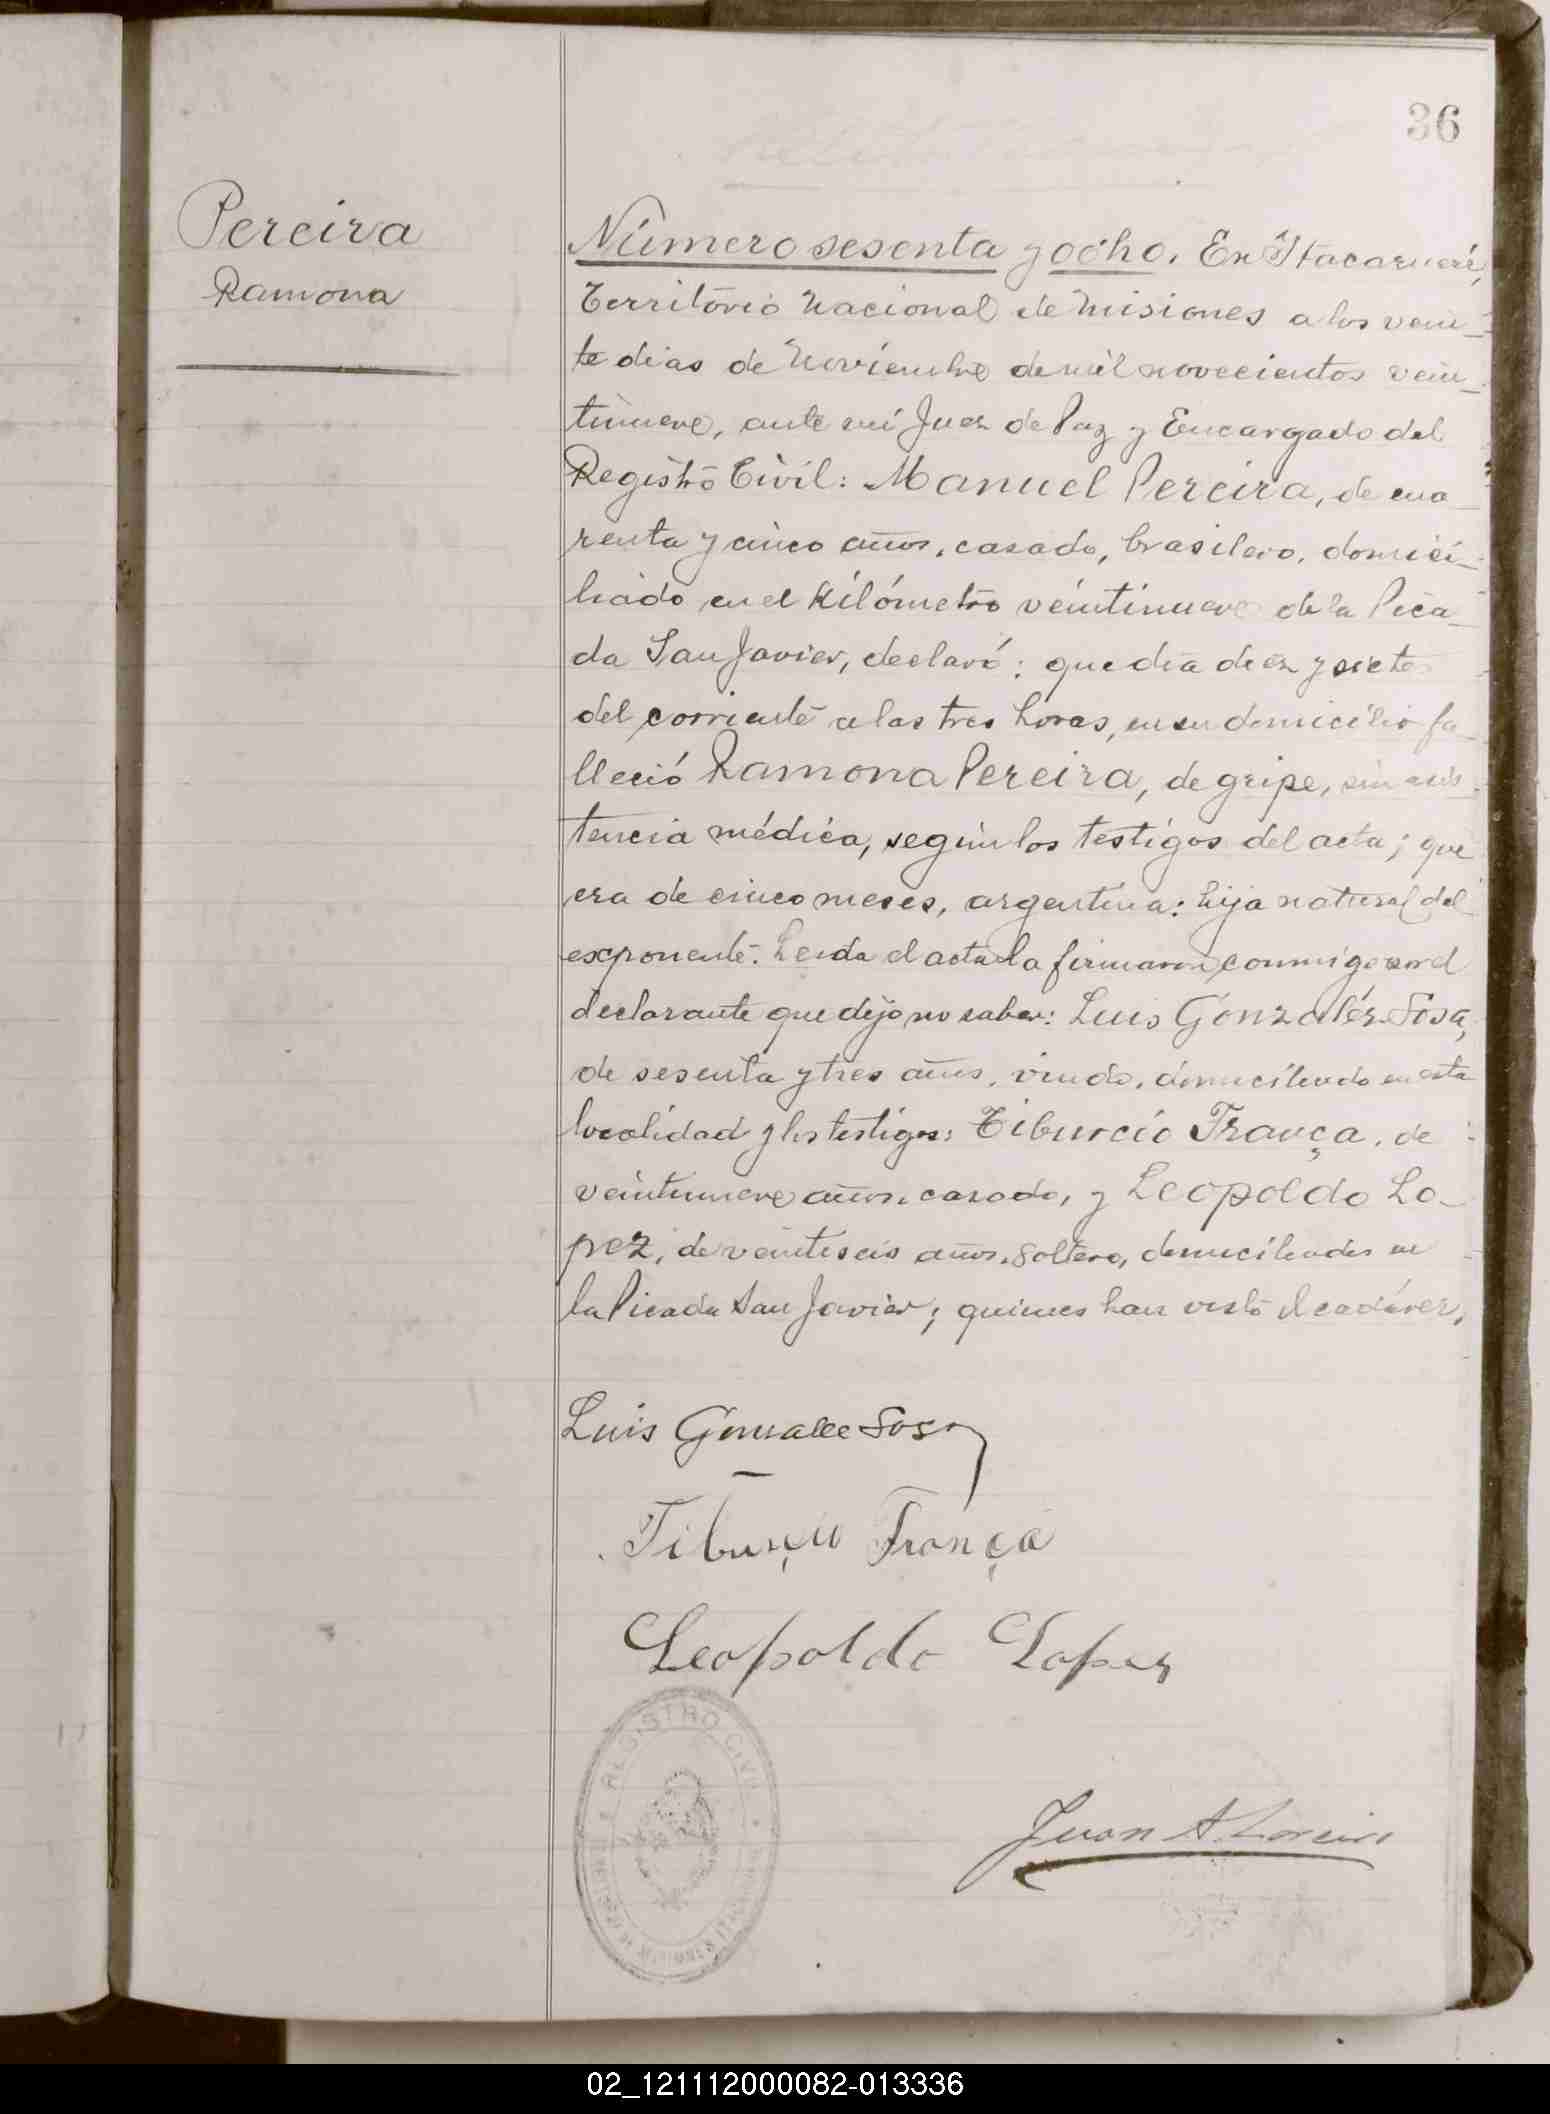 36
Pereira
Ramona
Número sesenta y ocho. En Itacaruaré,
Territorio Nacional de Misiones a los vein-
te dias de Noviembre de mil novecientos vein-
tinueve, ante mí Juez de Paz y Encargado del
Registro Civil: Manuel Pereira, de cua-
renta y cinco años, casado, brasilero, domici-
liado en el kilómetro veintinueve de la Pica-
da San Javier, declaró: que dia diez y siete
del corriente a las tres horas, en su domicilio fa-
lleció Ramona Pereira, de gripe, sin asis-
tencia médica, según los testigos del acta; que
era de cinco meses, argentina: hija natural del
exponente. Leida el acta la firmaron conmigo por el
declarante que dijo no saber: Luis Gonzaléz Sosa,
de sesenta y tres años, viudo, domiciliado en esta
localidad y los testigos: Tiburcio França, de
veintinueve años, casado, y Leopoldo Lo-
pez, de veintiseis años, soltero, domiciliados en
la Picada San Javier; quienes han visto el cadáver.
Luis Gonzalez Sosa
Tiburçio França
Leopoldo Lopez
REGISTRO CIVIL
Juan A.
02_121112000082-013336